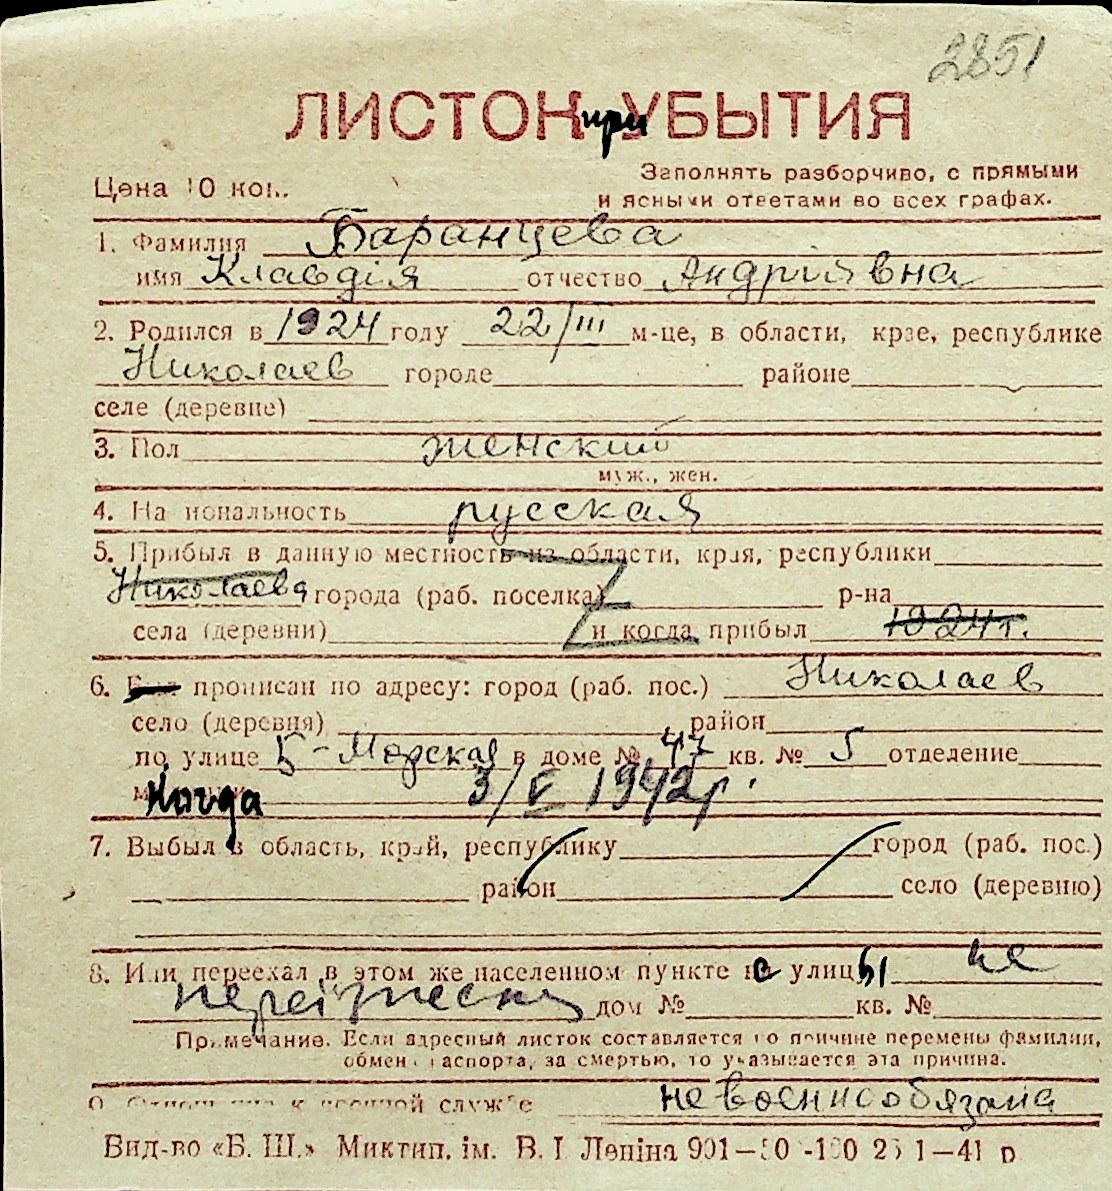 2851
ЛИСТОК при УБЫТИЯ
Цена 10 коп.
Заполнять разборчиво, с прямыми
и ясными ответами во всех графах.
1. Фамилия Баранцева
имя Клавдія отчество Андріївна
2. Родился в 1924 году 22/III м-це, в области, крае, республике
Николаев городе районе
селе (деревне)
3. Пол женский
муж., жен.
4. Национальность русская
5. Прибыл в данную местность из области, края, республики
Николаева города (раб. поселка) р-на
села (деревни) и когда прибыл 1924г.
6. прописан по адресу: город (раб. пос.) Николаев
село (деревня) район
по улице Б-Морская в доме № 47 кв. № 5 отделение
Когда 3/V 1942р.
7. Выбыл в область, край, республику город (раб. пос.)
район село (деревню)
8. Или переехал в этом же населенном пункте с улицы не
дом № кв. №
Примечание. Если адресный листок составляется по причине перемены фамилии,
обмена паспорта, за смертью, то указывается эта причина.
9. Отношение к военной службе невоеннообязана
Вид-во «Б. Ш.» Миктип. ім. В. І Леніна 901— 1—41 р